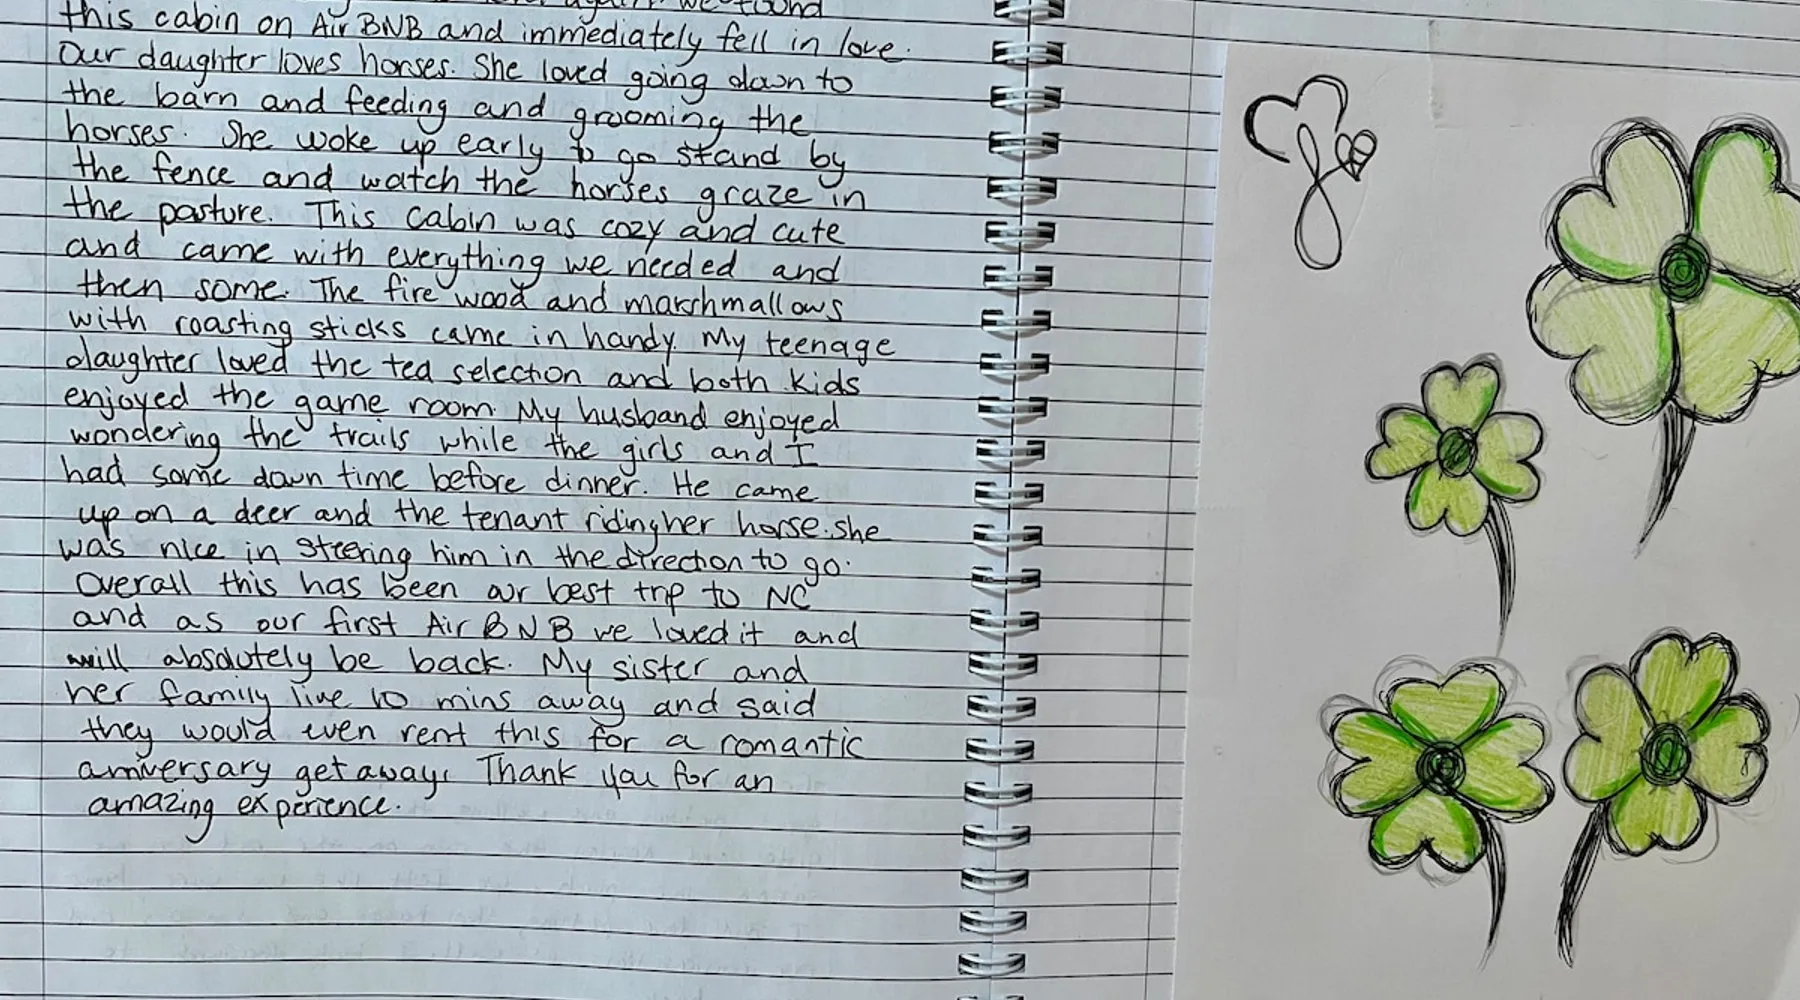 again we found
this cabin on Air BNB and immediately fell in love.
Our daughter loves horses. She loved going down to
the barn and feeding and grooming the
horses. She woke up early to go stand by
the fence and watch the horses graze in
the pasture. This cabin was cozy and cute
and came with everything we needed and
then some. The fire wood and marshmallows
with roasting sticks came in handy. My teenage
daughter loved the tea selection and both kids
enjoyed the game room. My husband enjoyed
wondering the trails while the girls and I
had some down time before dinner. He came
up on a deer and the tenant riding her horse. She
was nice in steering him in the direction to go.
Overall this has been our best trip to NC
and as our first Air BNB we loved it and
will absolutely be back. My sister and
her family live 10 mins away and said
they would even rent this for a romantic
anniversary get away. Thank you for an
amazing experience.